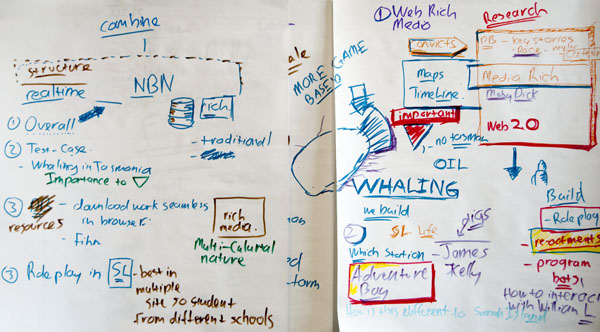 combine
structure
realtime
NBN
rich
① Overall
- traditional
② Test-Case.
- Whaling in Tasmania
Importance to
③
resources
- download work seamless
in browser.
- Film
rich
media.
Multi-Cultural
nature
③ Roleplay in SL - best in
multiple
site so student
from different schools
MORE GAME
BASED
① Web Rich
Media
convicts
Maps
TimeLine.
important
- no Tasman
OIL
WHALING
we build
Research
DB - key stories
Media Rich
Moby Dick
Web 2.0
②
SL Life
Which Station
Adventure
Bay
- James
Kelly
How is this different to Sarah Island
Build
- Roleplay
- program
bots!
How to interact
with William L